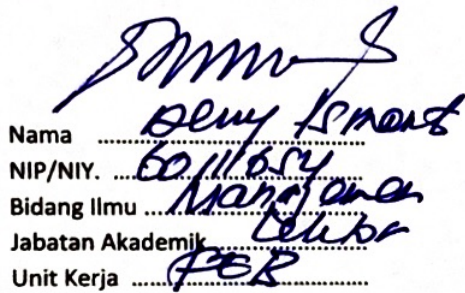 Nama Deny Ismanto
NIP/NIY. 60111654
Bidang Ilmu Manajemen
Jabatan Akademik Lektor
Unit Kerja FEB